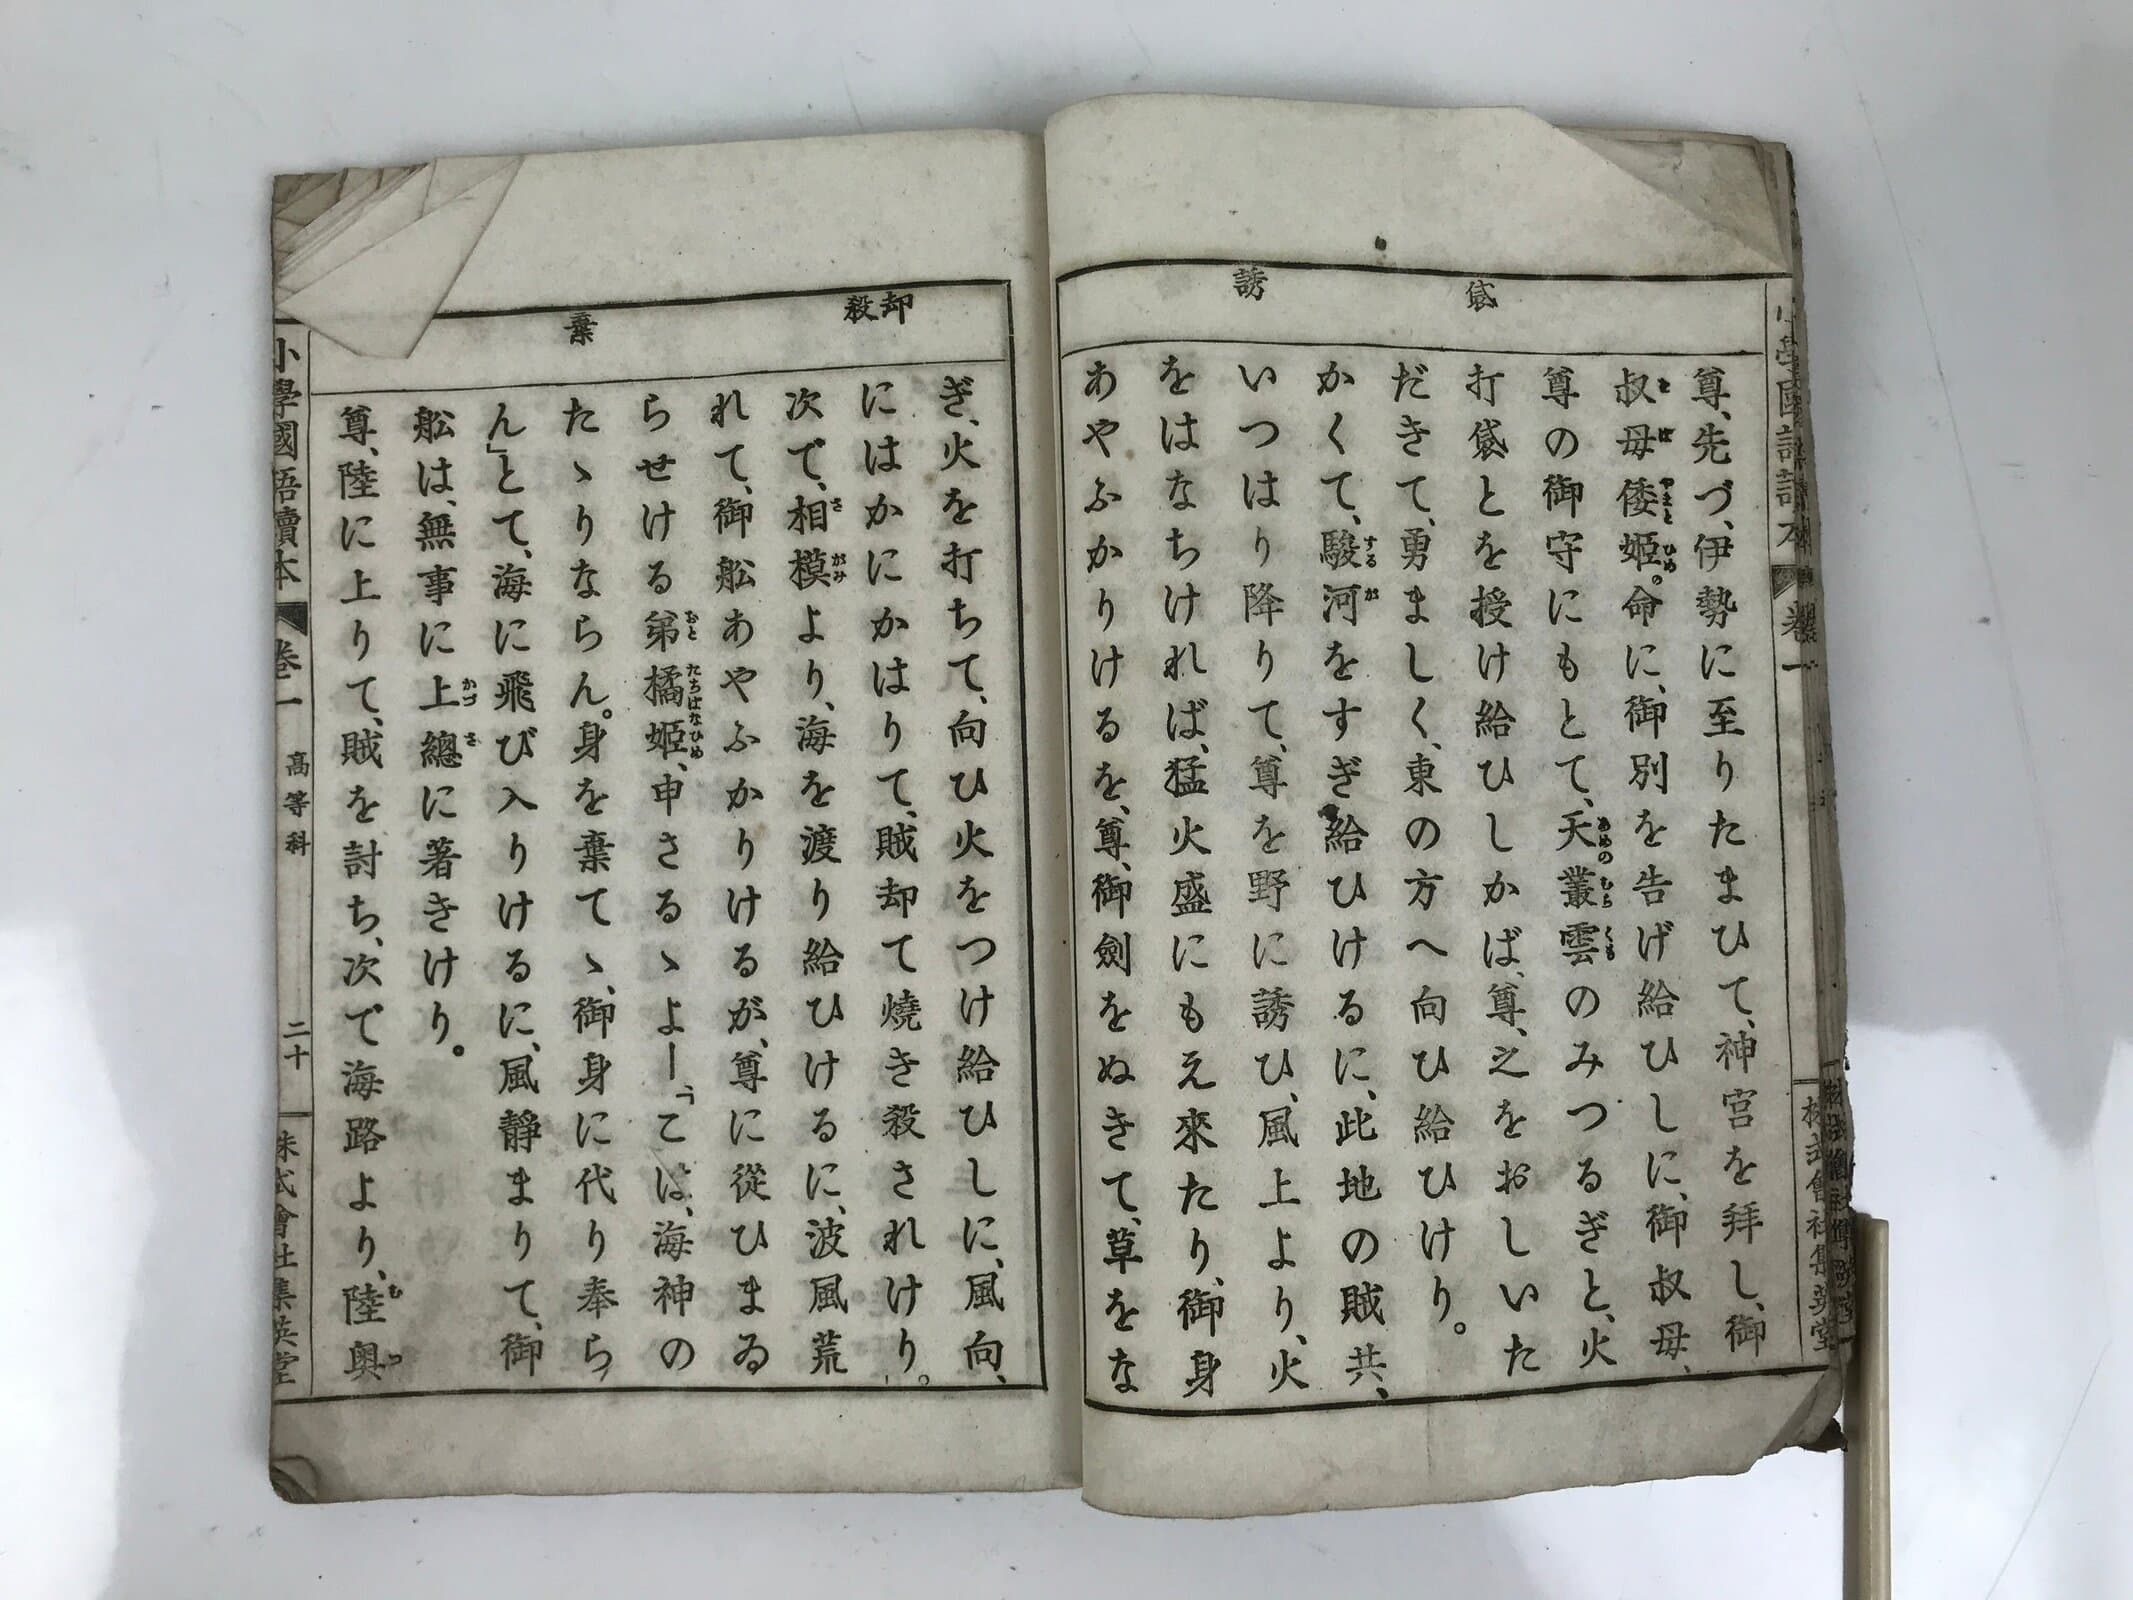 誘
袋
尊、先づ、伊勢に至りたまひて、神宮を拜し、御
叔母倭姫。命に、御別を告げ給ひしに、御叔母、
尊の御守にもとて、天叢雲のみつるぎと、火
打袋とを授け給ひしかば、尊、之をおしいた
だきて、勇ましく、東の方へ向ひ給ひけり。
かくて、駿河をすぎ給ひけるに、此地の賊共、
いつはり降りて、尊を野に誘ひ、風上より、火
をはなちければ、猛火盛にもえ來たり、御身
あやふかりけるを、尊、御劍をぬきて、草をな
却殺
棄
ぎ、火を打ちて、向ひ火をつけ給ひしに、風向、
にはかにかはりて、賊却て燒き殺されけり。
次で、相模より、海を渡り給ひけるに、波風荒
れて、御舩あやふかりけるが、尊に從ひまゐ
らせける弟橘姫、申さるゝよー「こは、海神の
たゝりならん。身を棄てゝ、御身に代り奉ら
ん」とて、海に飛び入りけるに、風靜まりて、御
舩は、無事に上總に著きけり。
尊、陸に上りて、賊を討ち、次で海路より、陸奥
小學國語讀本 卷一 高等科 二十 株式會社集英堂